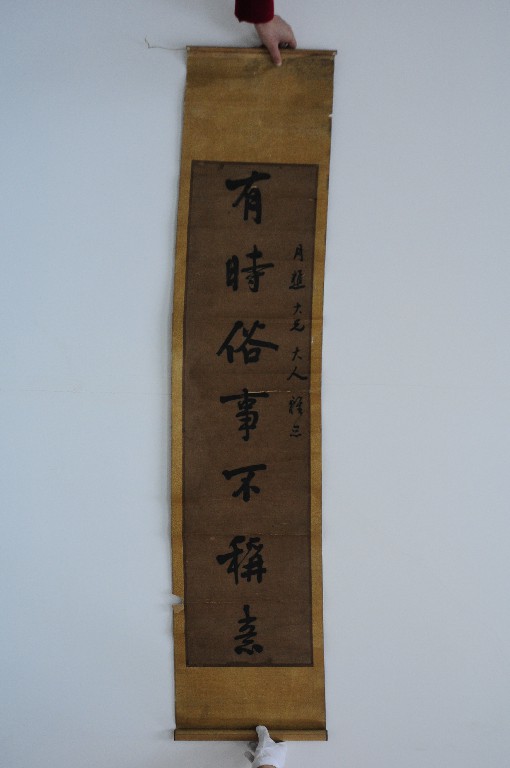 月大兄大人雅
有時俗事不稱意